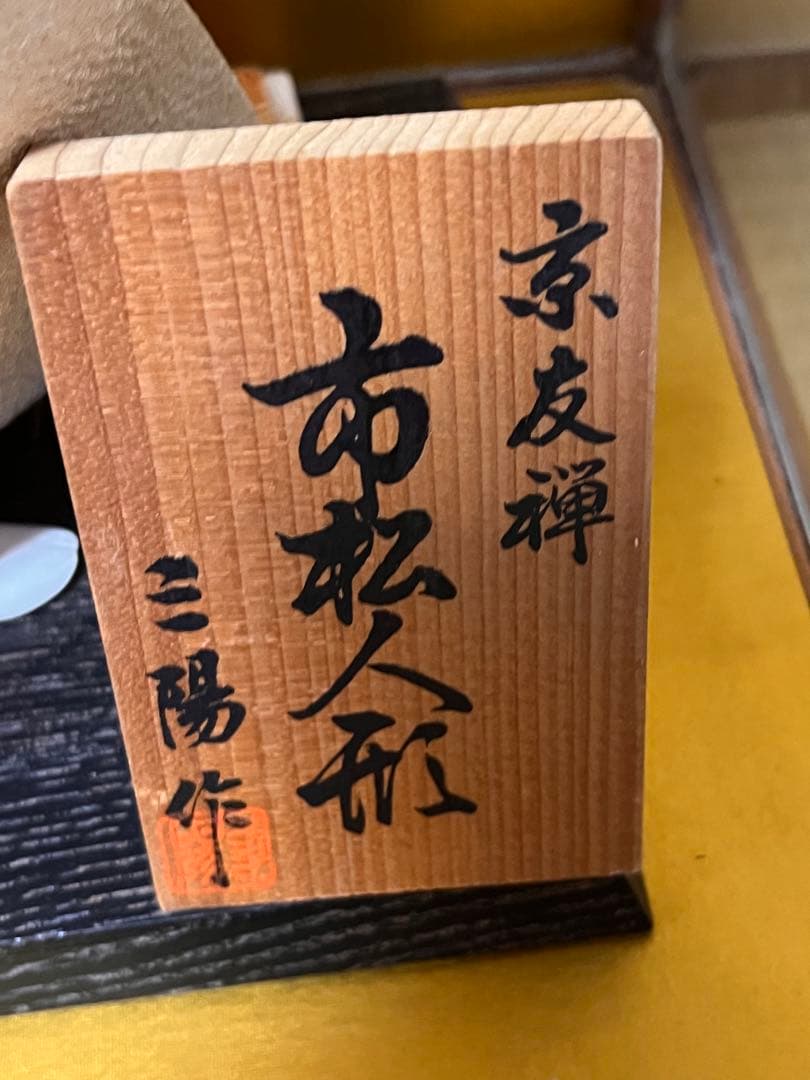 京友禅
市松人形
三陽作